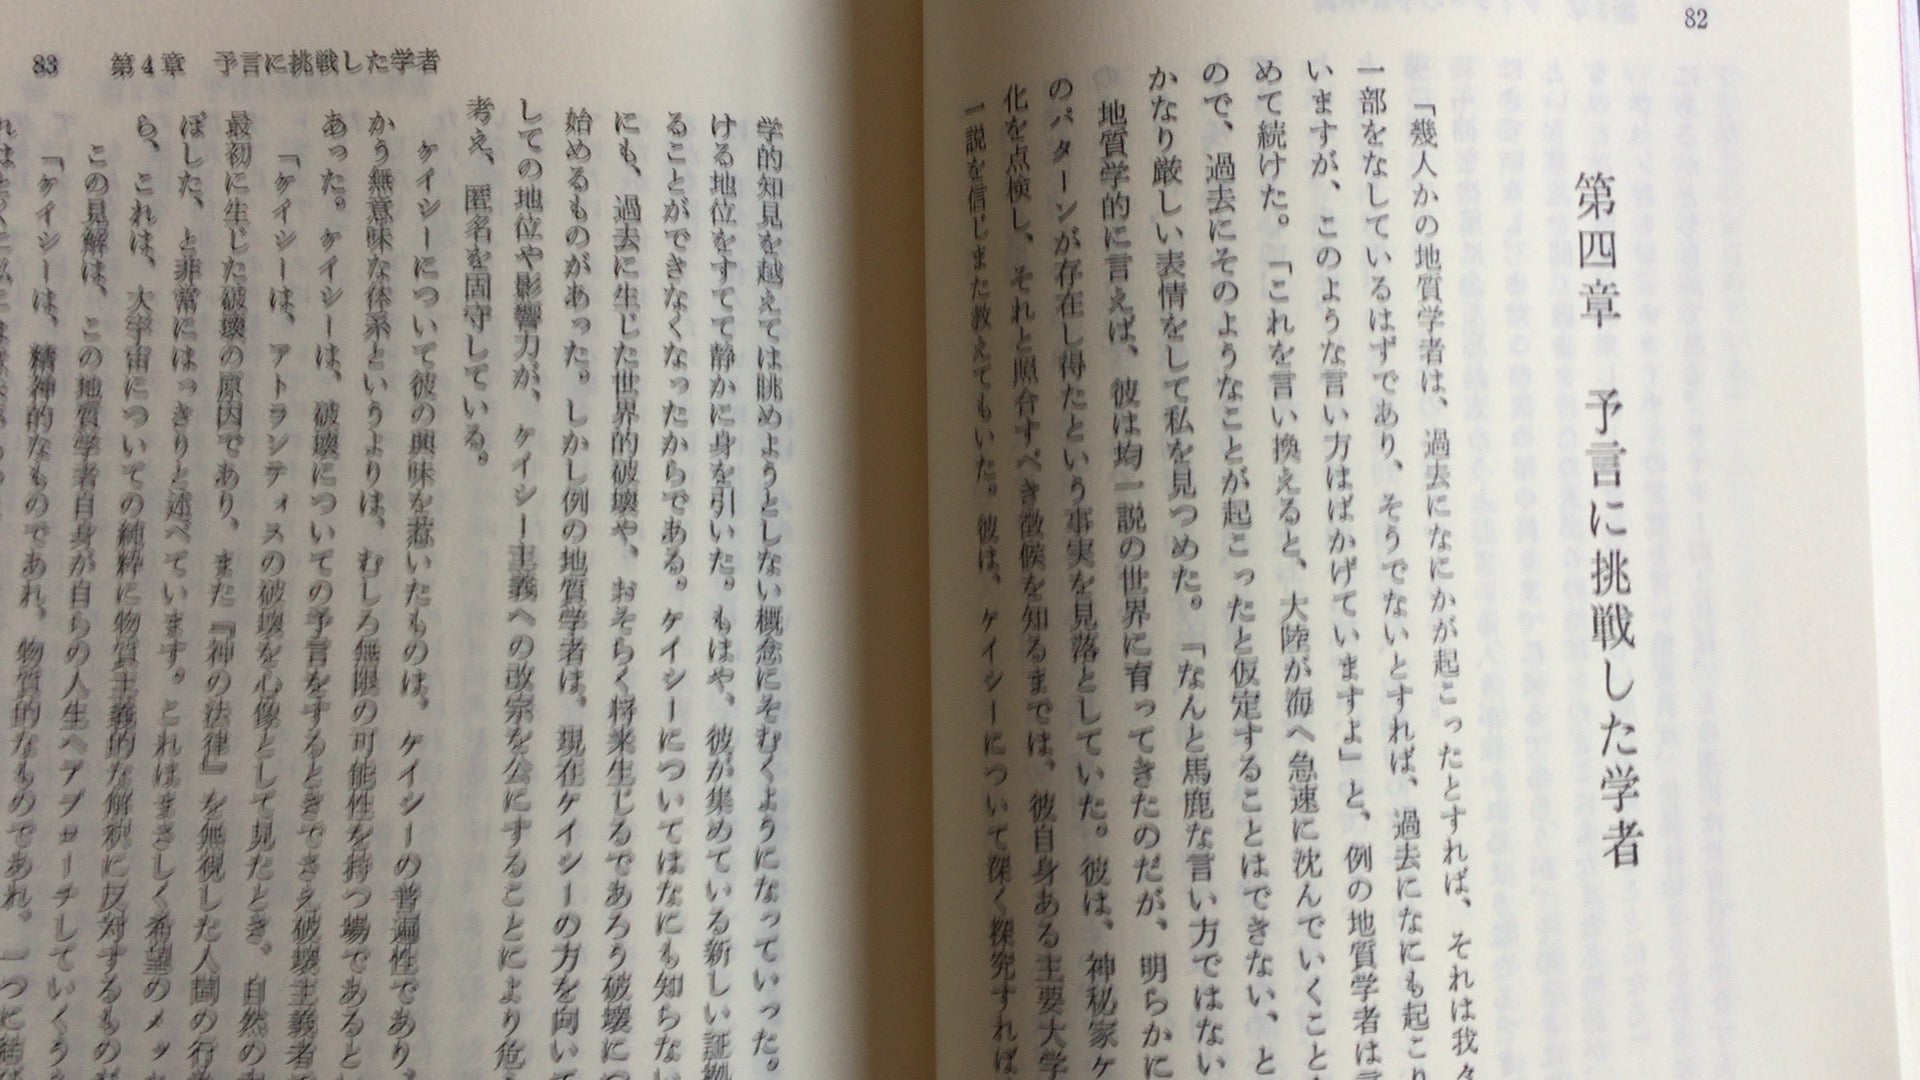 82
第四章　予言に挑戦した学者
「幾人かの地質学者は、過去になにかが起こったとすれば、それは我々
一部をなしているはずであり、そうでないとすれば、過去になにも起こり
いますが、このような言い方はばかげていますよ」と、例の地質学者は言
めて続けた。「これを言い換えると、大陸が海へ急速に沈んでいくこと
ので、過去にそのようなことが起こったと仮定することはできない、と
かなり厳しい表情をして私を見つめた。「なんと馬鹿な言い方ではない
地質学的に言えば、彼は均一説の世界に育ってきたのだが、明らかに
のパターンが存在し得たという事実を見落としていた。彼は、神秘家ケ
化を点検し、それと照合すべき徴候を知るまでは、彼自身ある主要大学
一説を信じまた教えてもいた。彼は、ケイシーについて深く探究すれば
83　第4章　予言に挑戦した学者
学的知見を越えては眺めようとしない概念にそむくようになっていった。
ける地位をすてて静かに身を引いた。もはや、彼が集めている新しい証拠
ることができなくなったからである。ケイシーについてはなにも知らない
にも、過去に生じた世界的破壊や、おそらく将来生じるであろう破壊につ
始めるものがあった。しかし例の地質学者は、現在ケイシーの方を向いて
しての地位や影響力が、ケイシー主義への改宗を公にすることにより危
考え、匿名を固守している。
ケイシーについて彼の興味を惹いたものは、ケイシーの普遍性であり、
かう無意味な体系というよりは、むしろ無限の可能性を持つ場であると
あった。ケイシーは、破壊についての予言をするときでさえ破壊主義者
「ケイシーは、アトランティスの破壊を心像として見たとき、自然の
最初に生じた破壊の原因であり、また『神の法律』を無視した人間の行
ぼした、と非常にはっきりと述べています。これはまさしく希望のメッ
ら、これは、大宇宙についての純粋に物質主義的な解釈に反対するもの
この見解は、この地質学者自身が自らの人生へアプローチしていくう
「ケイシーは、精神的なものであれ、物質的なものであれ、一つに結